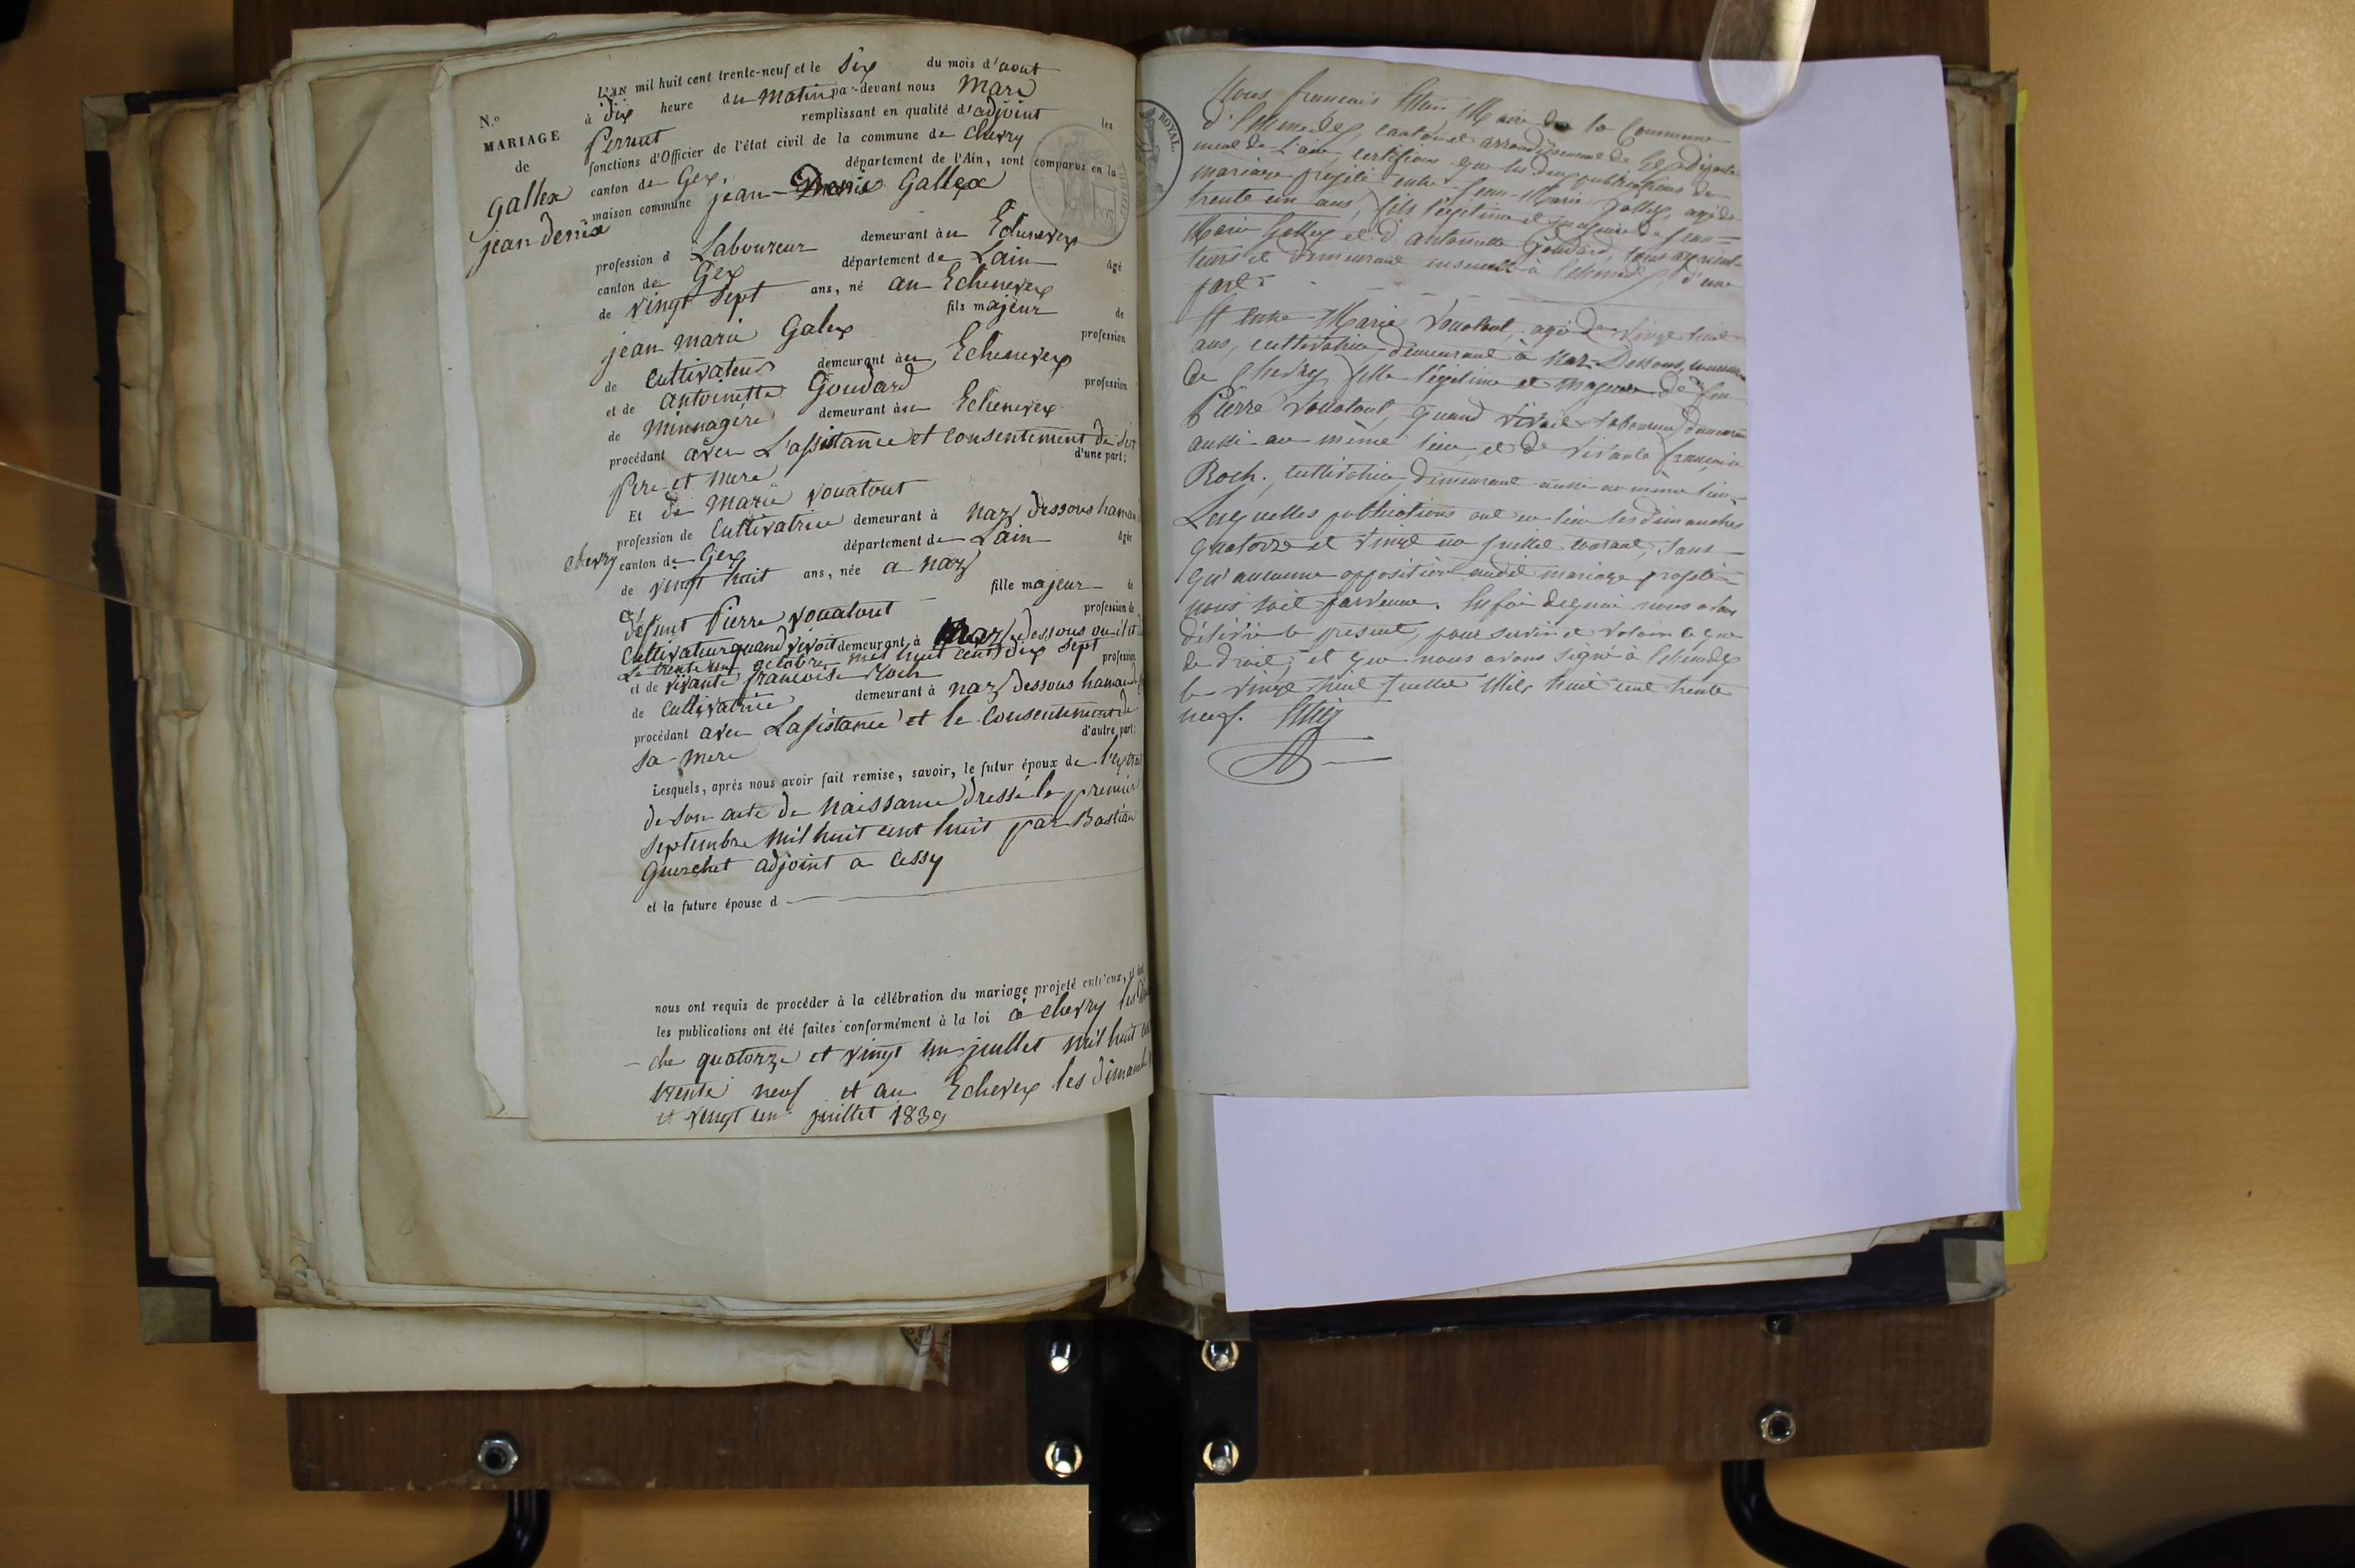 L'AN mil huit cent trente-neuf et le Six du mois d'aout
à dix heure du matin pa-devant nous Marc
Pernut remplissant en qualité d'adjoint les
fonctions d'Officier de l'état civil de la commune de Chevry
canton de Gex, département de l'Ain, sont comparus en la
maison commune jean Denis Gallex
N.o
MARIAGE
de
Gallex
jean denis
profession d Laboureur demeurant àu Echenevex
canton de Gex département de Lain âgé
de vingt Sept ans, né au Echenevex
fils majeur de
jean marie Galex profession
de cultivateur demeurant àu Echenevex
et de antoinette Goudard profession
de Minnagére demeurant àu Echenevex
procédant avec L'assistance et consentement de ses
d'une part;
Pere et mere
Et de Marie vouatout
profession de Cultivatrice demeurant à naz dessous hamau
chevry canton de Gex département de Lain âgée
de vingt huit ans, née a naz
fille majeur de
defunt Pierre vouatout profession de
Cultivateur quand vivoit demeurant à Naz dessous ou il est
Le trente un octobre mil huit cent dix sept
et de vivante francoise Roch profession
de cultivatrice demeurant à naz dessous hamau
procédant avec Lasistance et le Consentement de
d'autre part;
sa mere
Lesquels, après nous avoir fait remise, savoir, le futur époux de l'extrait
de son acte de Naissance dressé le premier
septembre mil huit cent huit par Bastian
Guerchet adjoint a Cessy
et la future épouse d
nous ont requis de procéder à la célébration du mariage projeté entr'eux,
les publications ont été faites conformément à la loi à chevry les
che quatorze et vingt un juillet mil huit
trente neuf et au Echevex les dimanche
et vingt un juillet 1839
ROYAL.
Nous francois Maire de la Commune
d'Echenevex, canton et arrondissement de Gex Départe
ment de L'ain, certifions que les deux publications de
mariage projeté entre Jean-Marie Gallex, agé de
trente un ans, fils légitime et majeur de Jean=
Marie Gallex et d'antoinette Goudard, tous
demeurant ensemble à Echenevex, d'une
part.
Et entre Marie Vouatout, agé de vingt huit
ans, cultivatrice, demeurant à Naz-Dessous, commune
de Chevry, fille légitime et majeure de feu
Pierre Vouatout, quand vivait laboureur, demeurant
aussi au même lieu, et de vivante françoise
Roch, cultivatrice, demeurant aussi au même lieu,
Lesquelles publications ont eu lieu les dimanches
quatorze et vingt un juillet courant, sans
qu'aucune opposition audit mariage projeté
nous soit parvenue. En foi de quoi nous avons
délivré le présent, pour servir et valoir ce que
de droit; et que nous avons signé à Echenevex
le vingt huit juillet Mil huit cent trente
neuf.